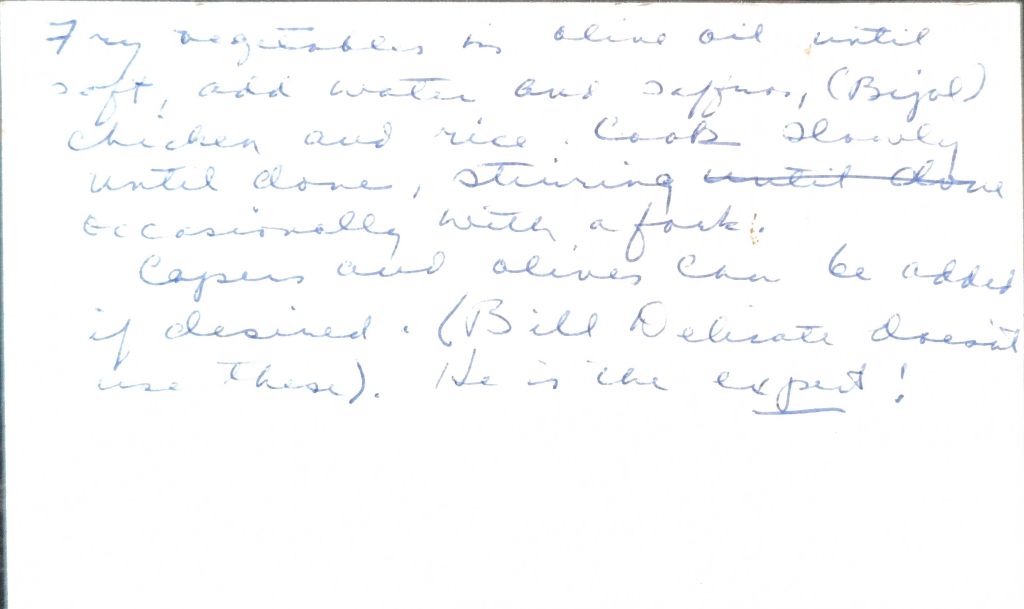 Fry vegetables in olive oil until
soft, add water and saffron, (Bijol)
chicken and rice. Cook slowly
until done, stirring until done
occasionally with a fork.
Capers and olives can be added
if desired. (Bill Delicate doesn't
use these). He is the expert!